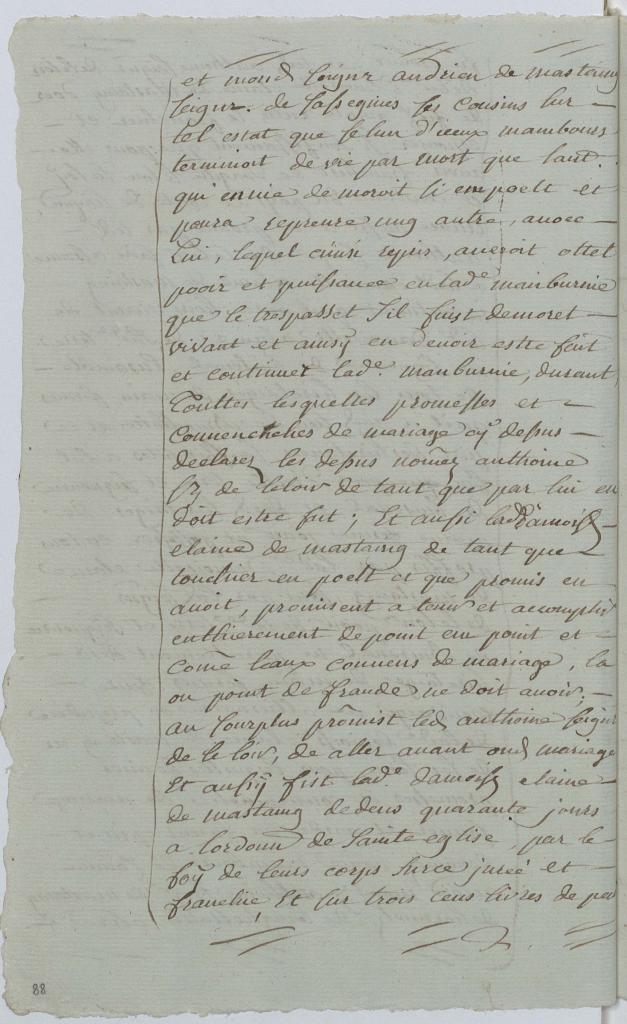 et mond seigneur andrien de mastaing
seigr. de sassegines ses cousins sur
tel estat que se lun d'iceux mambours
terminoit de vie par mort que laut.
qui en vie demoroit si em poelt et
poura reprenre ung autre, avoec
Lui, lequel ainsi repris, averoit ottel
pooir et puissance en lade. manburnie
que le trespasset s'il fuist demoret
vivant et ainsy en devoir estre fait
et continuet lade. manburnie, durant
Touttes lesquelles promesses et
Connenches de mariage cy depsus
declarez les depsus nomez anthoine
sr de leloir de tant que par lui en
doit estre fait; Et aussi lade damoise
elaine de mastaing de tant que
touchier en poelt et que promis en
avoit, promisrent a tenir et accomplir
enthierement de point en point et
come leaux convens de mariage, la
ou point de fraude ne doit avoir;
au sourplus promist led anthoine seigr
de le loir, de aller avant oud mariage
Et aussy fist lade. damoise elaine
de mastaing dedens quarante jours
a lordonn de Sainte eglise, par le
foy de leurs corps surce jureé et
franchie, Et sur trois cens livres de
88